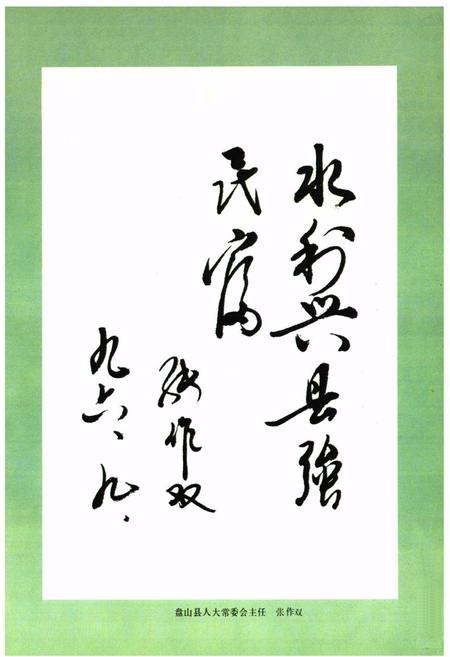 水利兴县强
民富
张作双
九六、九、
盘山县人大常委会主任 张作双